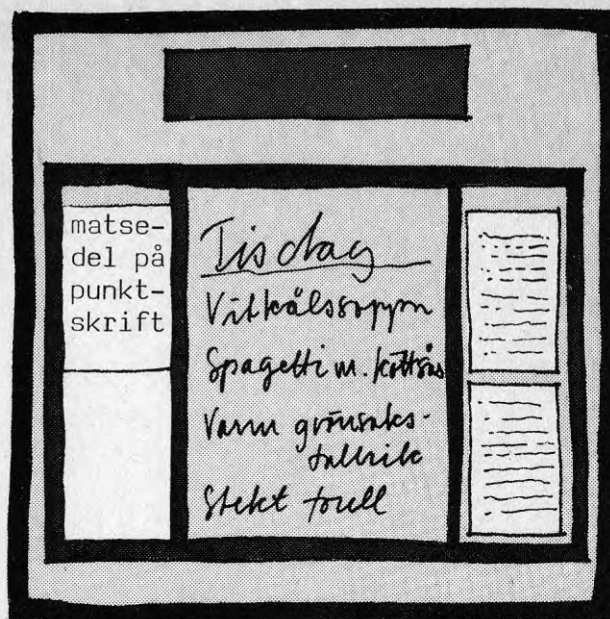 matse-
del på
punkt-
skrift
Tisdag
Vitkålssoppa
Spagetti m. köttsås
Varm grönsaks-
tallrik
Stekt sill